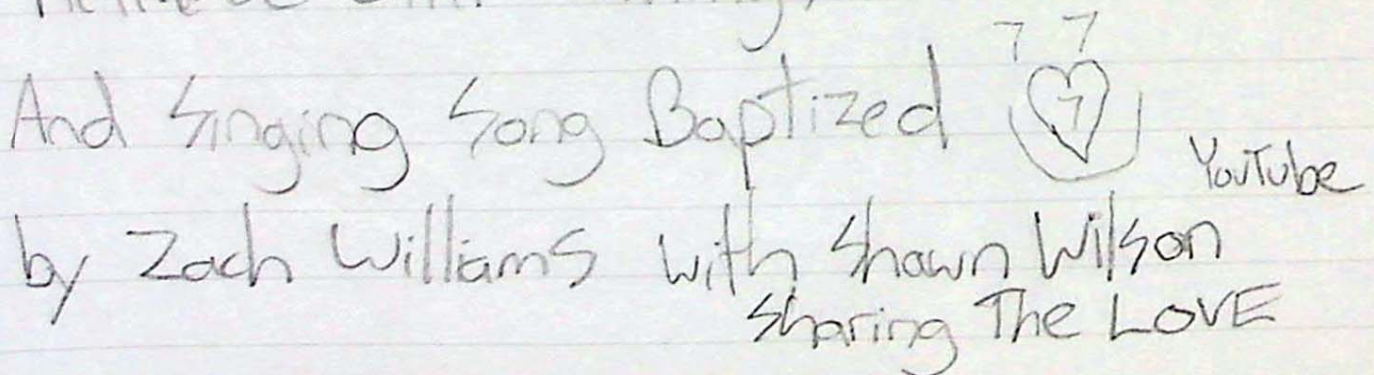 7 7
And Singing Song Baptized 7
YouTube
by Zach Williams with Shawn Wilson
Sharing The LOVE